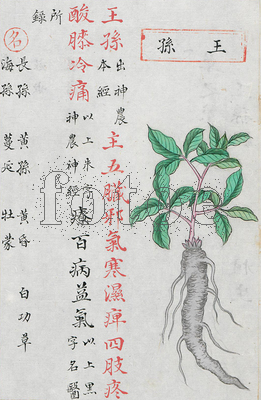 王孫
王孫出神農本經主五臓邪氣寒濕痺四肢疼
酸膝冷痛以上朱字神農本經療百病益氣以上黑字名醫
所録
名
長孫 黄孫 黄昏 白功草
海孫 蔓延 牡蒙
fotoe